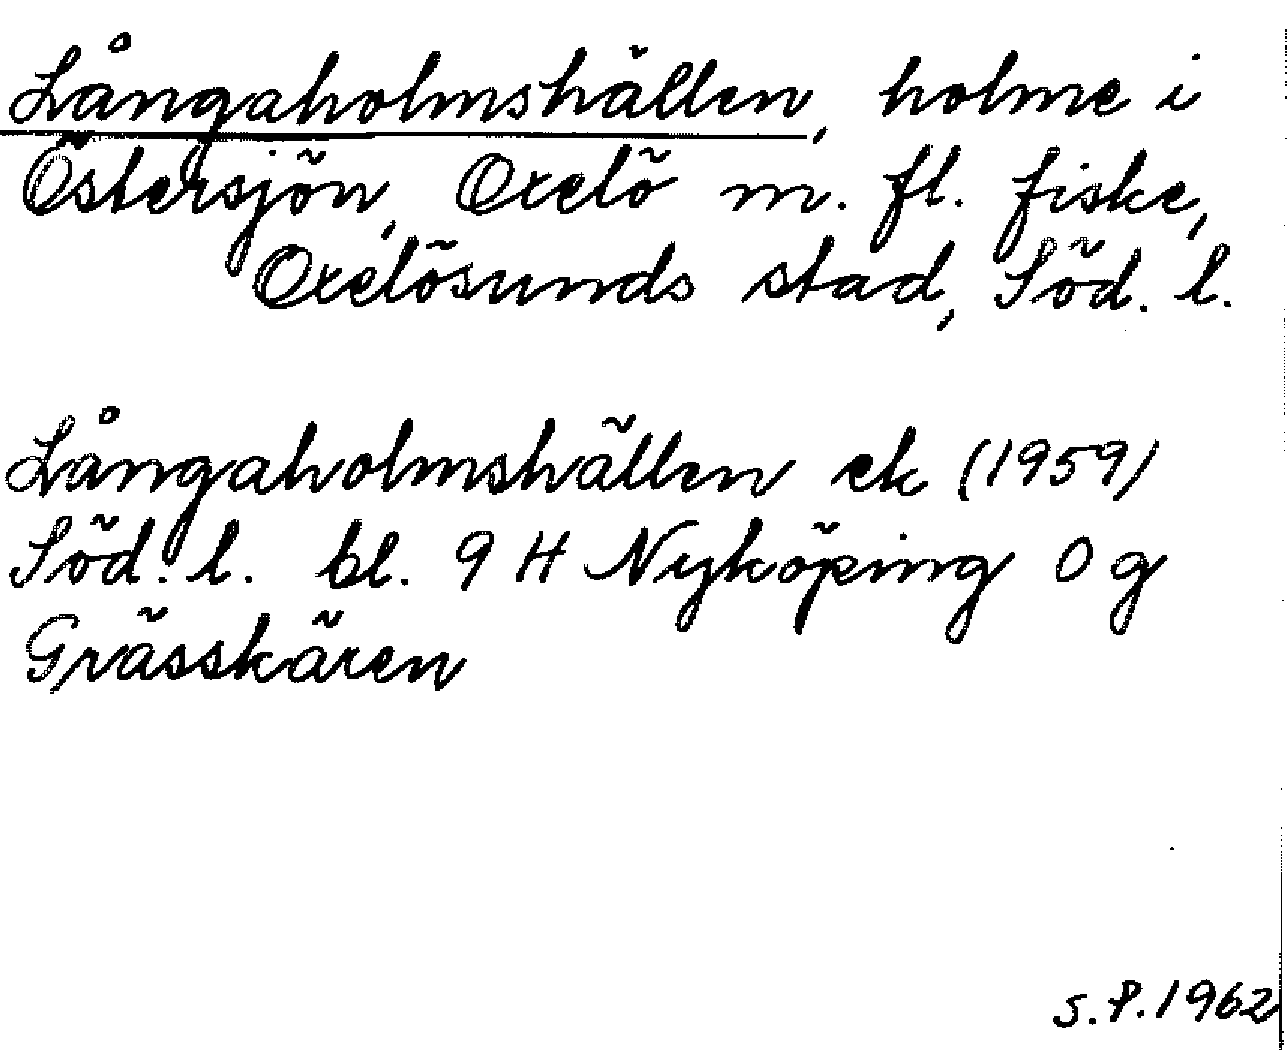 Långaholmshällen, holme i
Östersjön, Oxelö m. fl. fiske,
Oxelösunds stad, Söd. l.
Långaholmshällen ek (1959)
Söd. l. bl. 9 H Nyköping 0 g
Grässkären
S.P. 1962